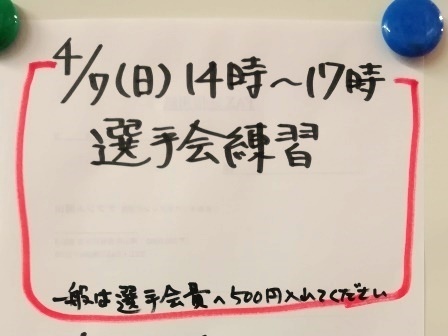 4/7(日)14時〜17時
選手会練習
一般は選手会費へ500円入れてください